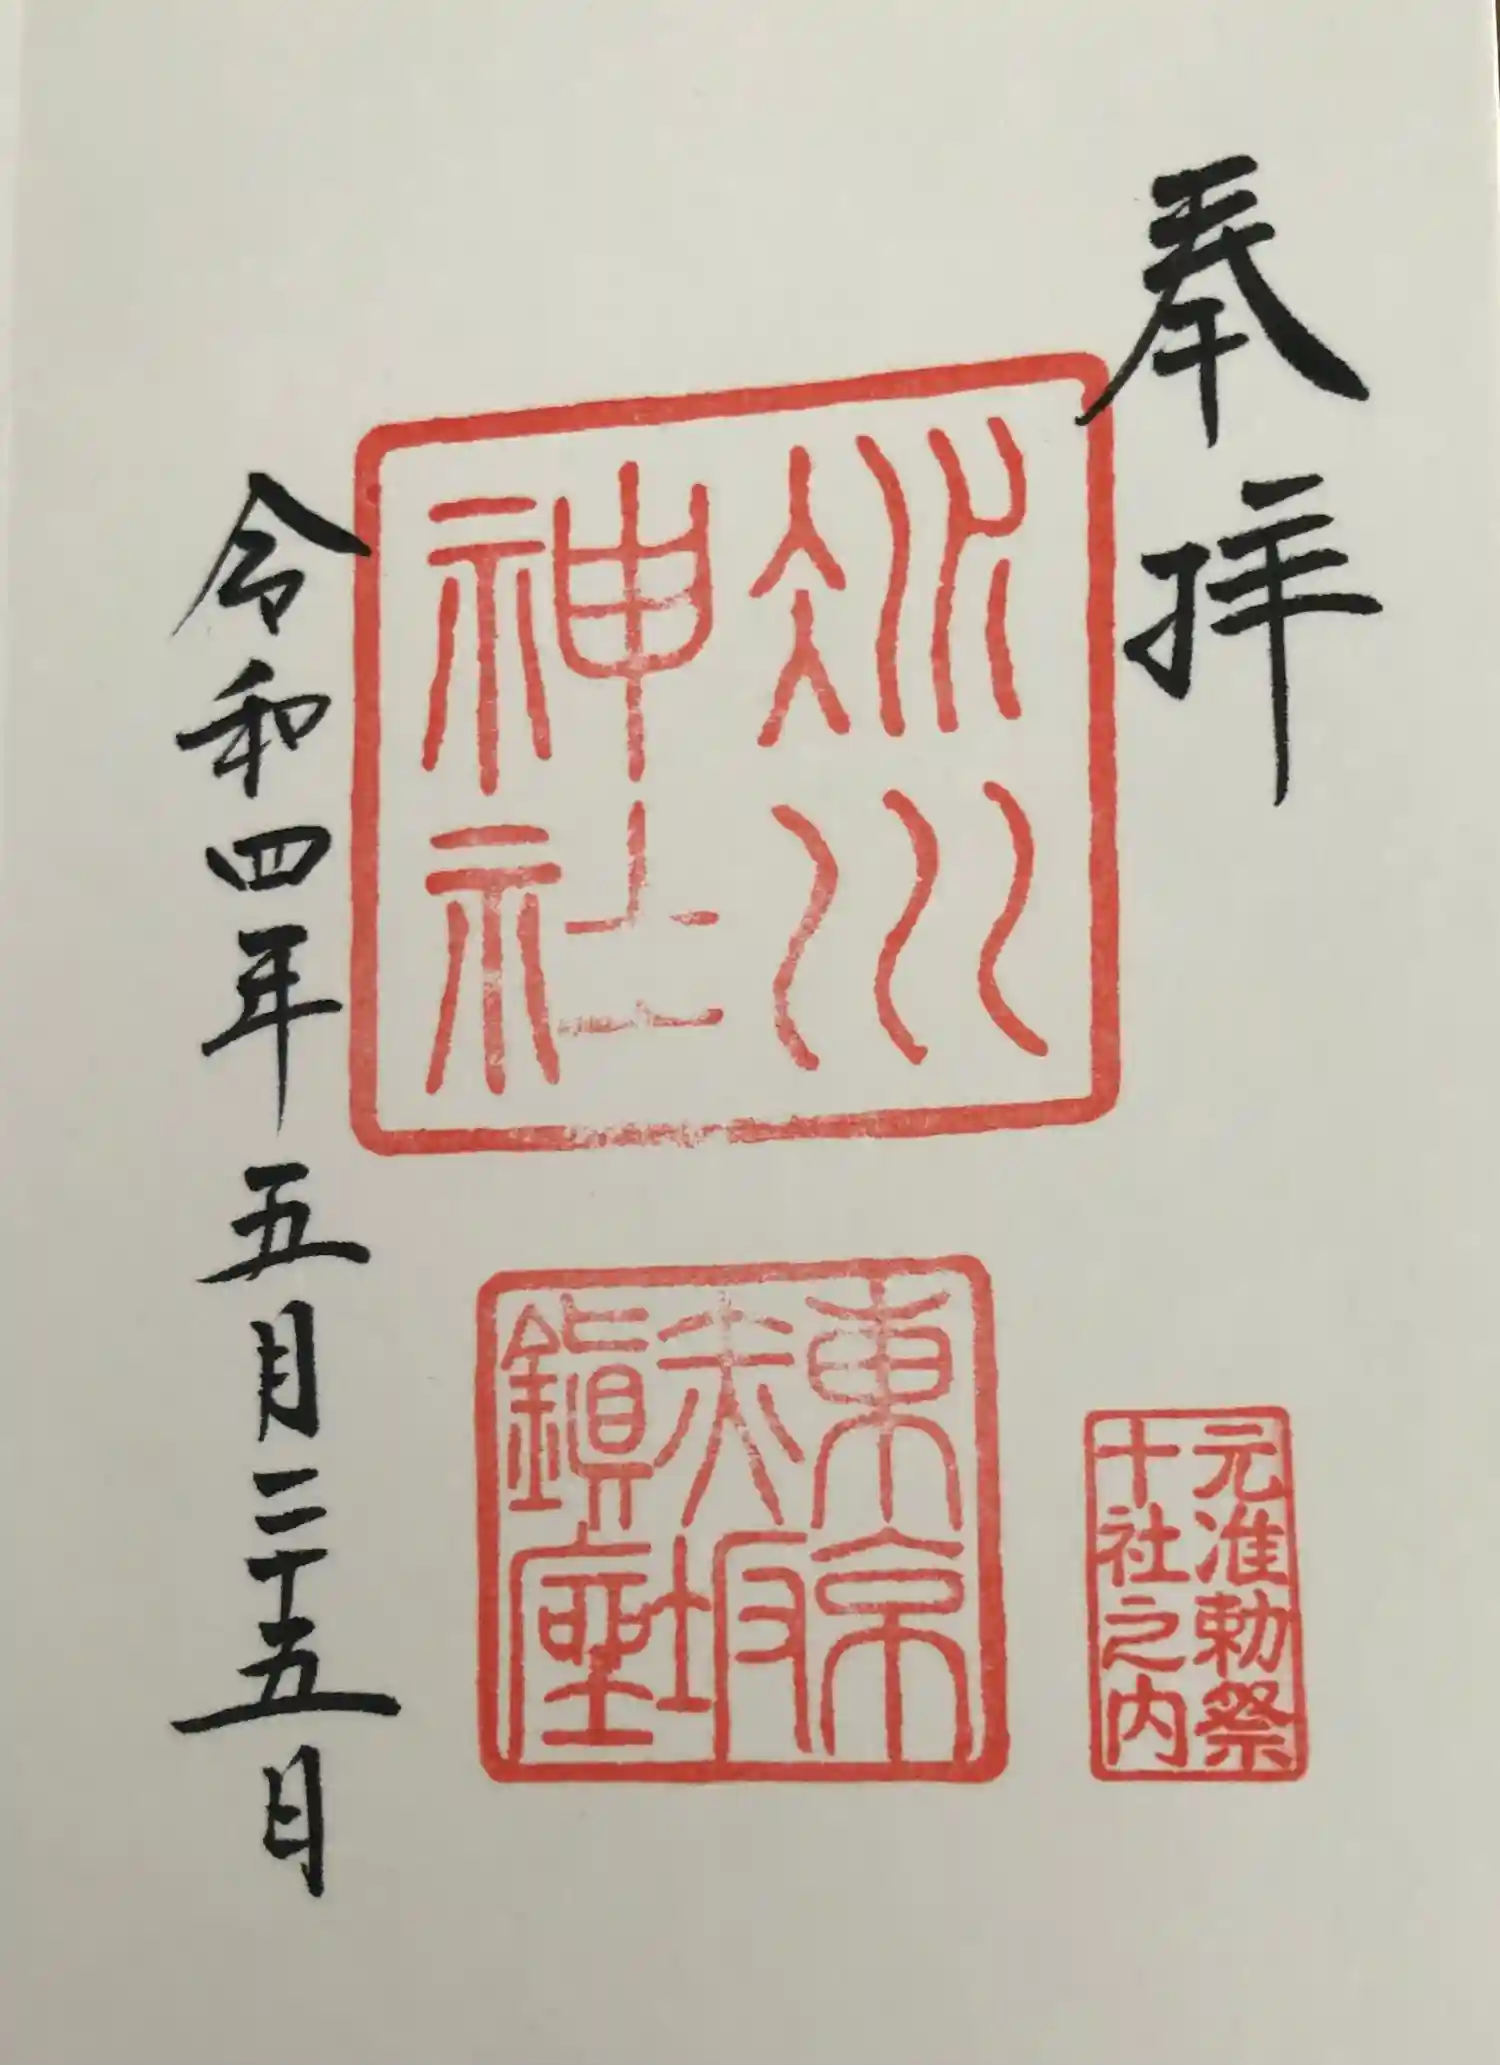 奉拝
氷川
神社
東京
赤坂
鎮座
元准勅祭
十社之内
令和四年 五月二十五日